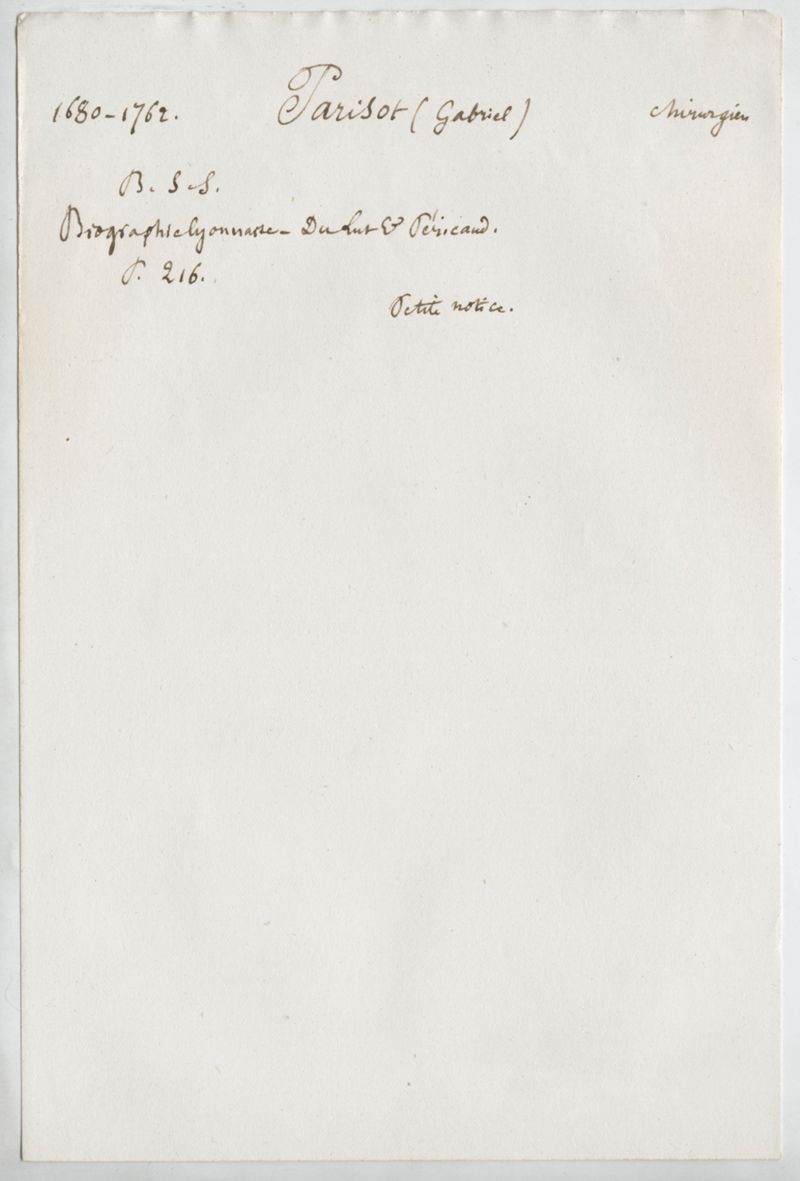 1680-1762. Parisot (Gabriel) chirurgien
B. S-S.
Biographie lyonnaise - Du Lut & Péricaud.
P. 216.
Petite notice.